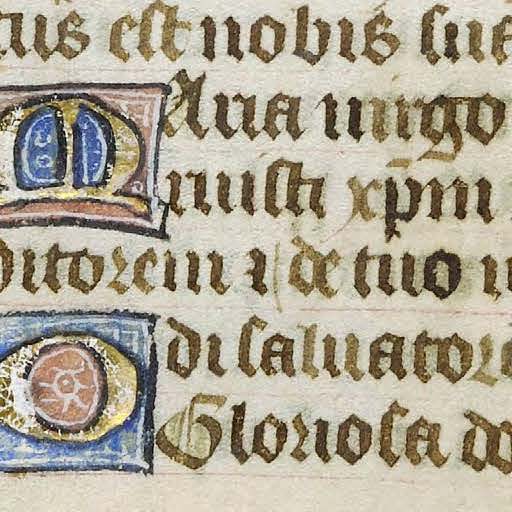 tus est nobis sue
Maria uirgo
nuisti xp̄m
ditorem ⁊ de tuo u
O di saluatore
Gloriosa do